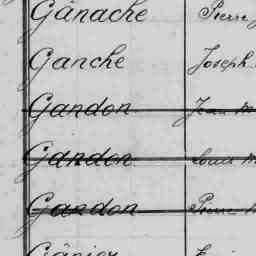 Gânache Pierre
Ganche Joseph
Gandon Jean
Gandon Louis
Gandon Pierre
Gânier